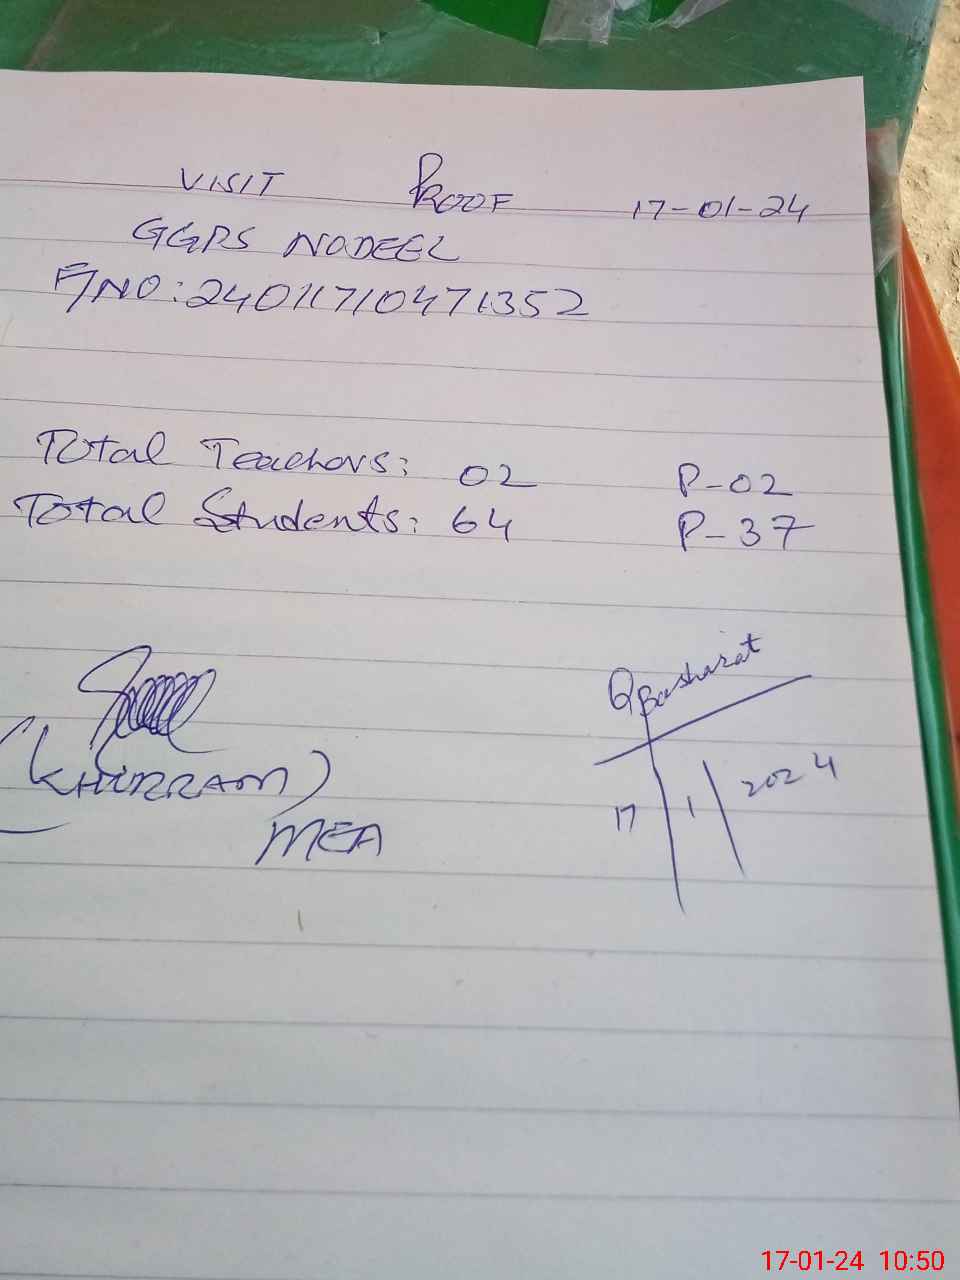 VISIT PROOF 17-01-24
GGPS NODEEL
F/NO: 24011710471352
Total Teachors: 02 P-02
Total Students: 64 P-37
QBasharat
17/1/2024
(KHURRAM)
MEA
17-01-24 10:50